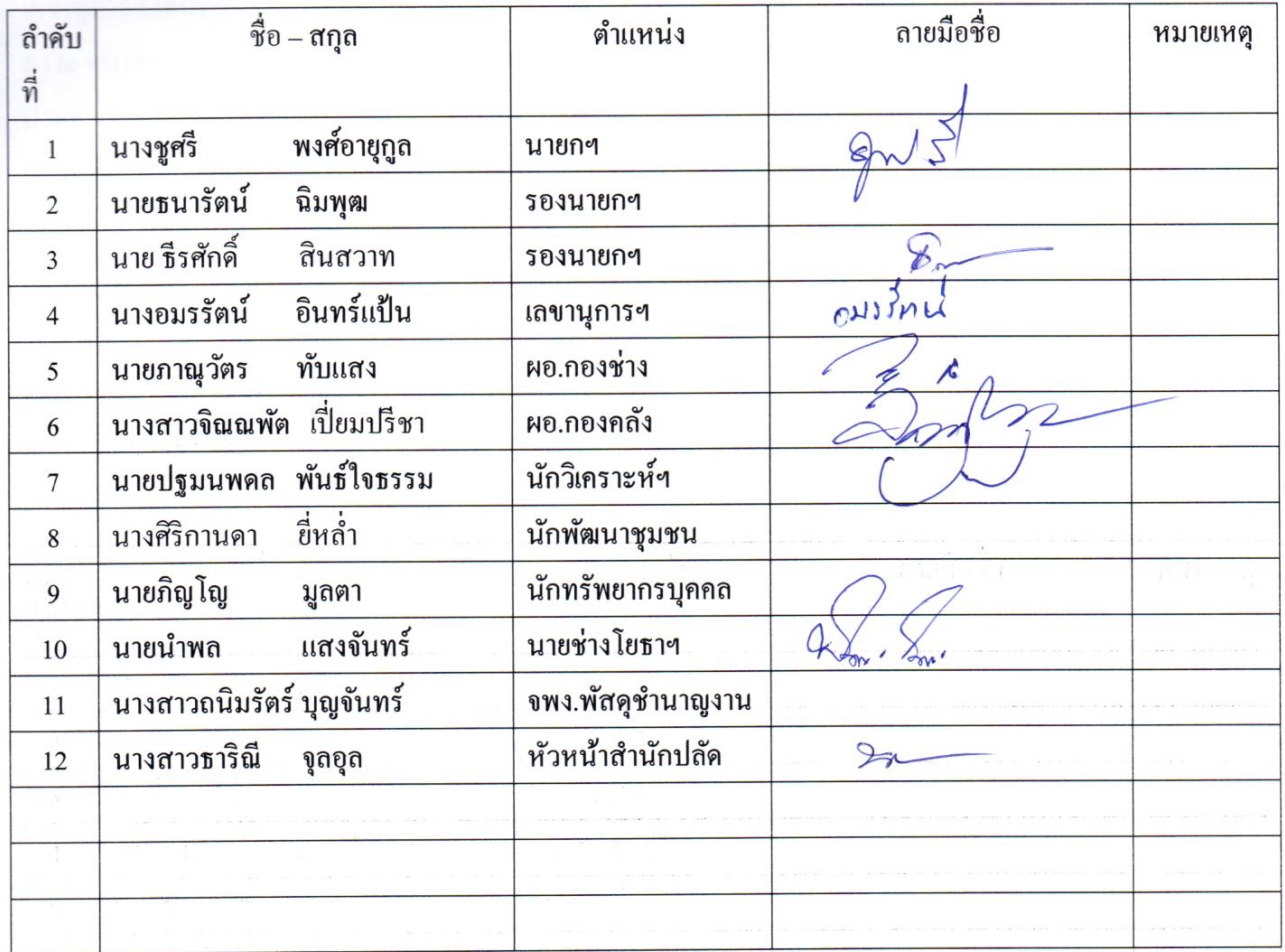 ลำดับ ชื่อ – สกุล ตำแหน่ง ลายมือชื่อ หมายเหตุ
ที่
1 นางชูศรี พงศ์อายุกูล นายกฯ ชูศรี
2 นายธนารัตน์ ฉิมพุฒ รองนายกฯ
3 นาย ธีรศักดิ์ สินสวาท รองนายกฯ
4 นางอมรรัตน์ อินทร์แป้น เลขานุการฯ อมรรัตน์
5 นายภาณุวัตร ทับแสง ผอ.กองช่าง
6 นางสาวจิณณพัต เปี่ยมปรีชา ผอ.กองคลัง
7 นายปฐมนพดล พันธ์ใจธรรม นักวิเคราะห์ฯ
8 นางศิริกานดา ยี่หล่ำ นักพัฒนาชุมชน
9 นายภิญโญ มูลตา นักทรัพยากรบุคคล
10 นายนำพล แสงจันทร์ นายช่างโยธาฯ
11 นางสาวถนิมรัตร์ บุญจันทร์ จพง.พัสดุชำนาญงาน
12 นางสาวธาริณี จุลอุล หัวหน้าสำนักปลัด